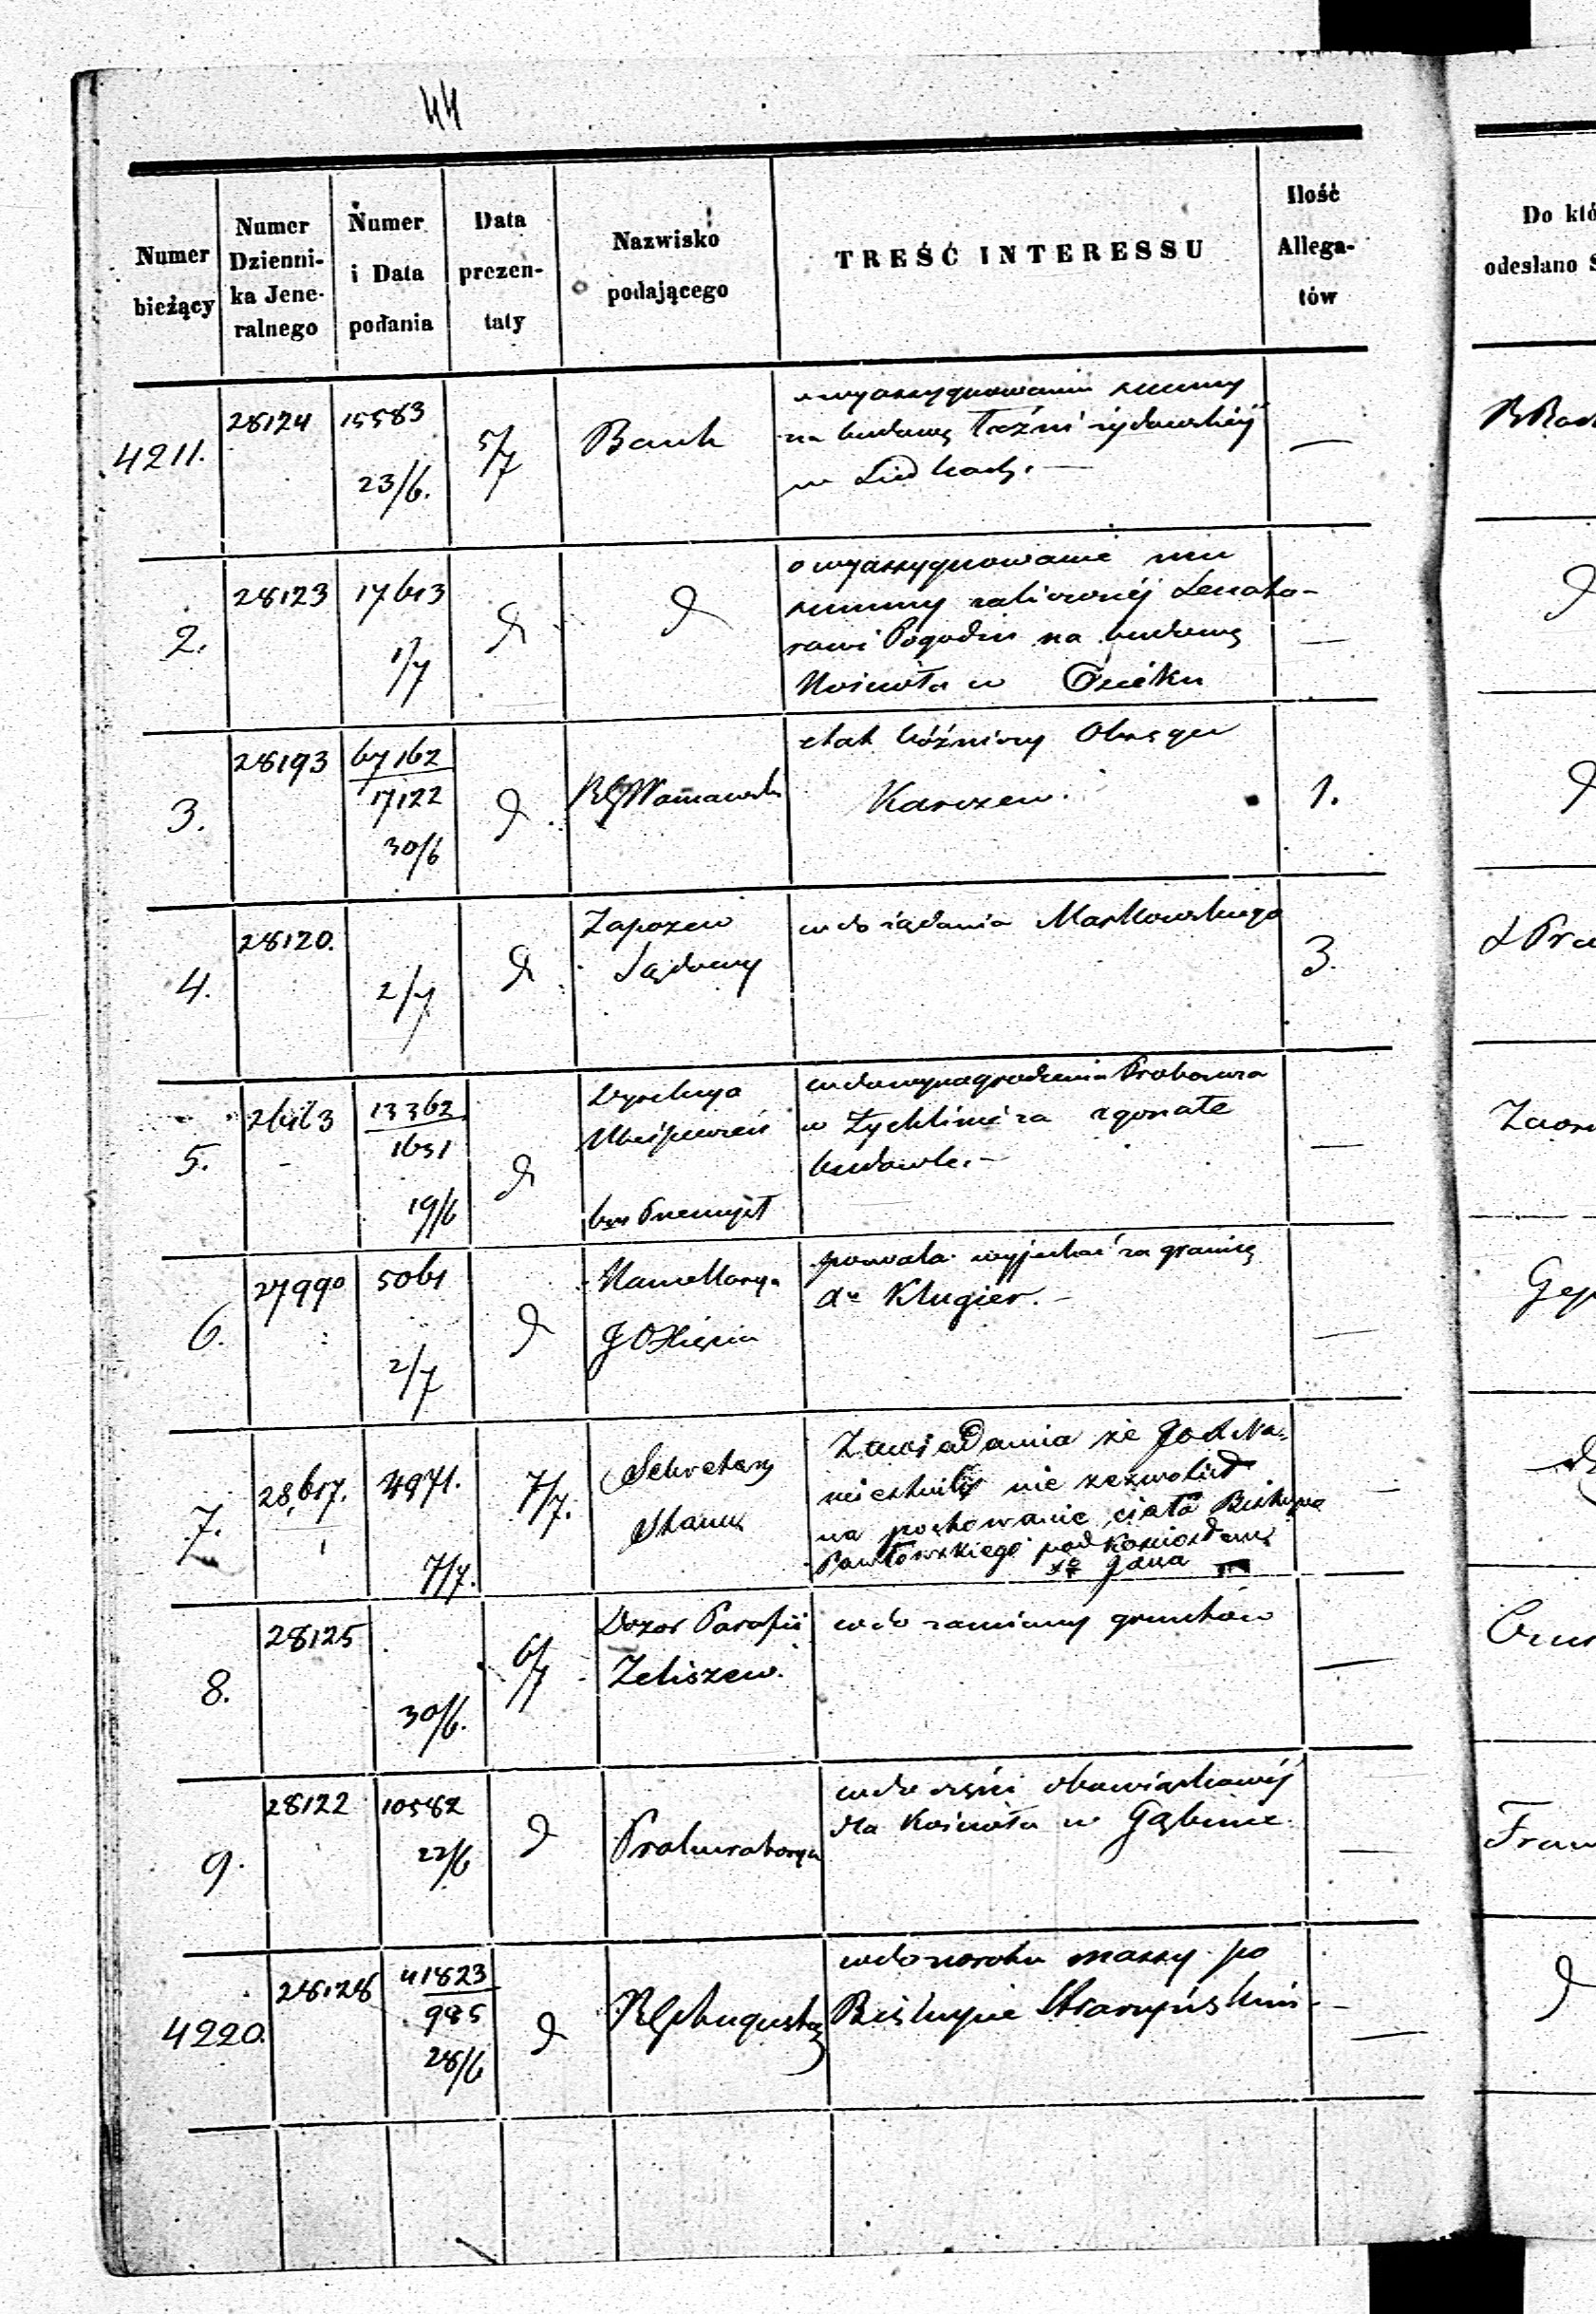 44
Numer bieżący
Numer Dzienni-
ka Jene-
ralnego
Numer
i Data
podania
Data
prezen-
taty
Nazwisko
podającego
TREŚĆ INTERESSU
Ilość
Allega-
tów
Do któ
odesłano S
4211.
28124
15583
23/6.
5/7
Bank
o wyassygnowaniu summy
na budowę Łaźni żydowskiéj
w Siedlcach. —
—
2.
28123
17613
1/7
d
d
o wyassygnowanie mu
summy zaliczonéj Senato-
rowi Pogodin na budowę
Kościoła w Osieku
—
d
3.
28193
67162
17122
30/6
d
RG Warszawski
etat bóżniczy Okręgu
Karczew.
1.
d
4.
28120.
2/7
d
Zapozew
Sądowy
wdo żądania Markowskiego
3.
5.
13362
1651
19/6
d
Dyrekcya
Ubezpieczeń
wdo wynagrodzenia Proboszcza
w Żychlinie za zgorzałe
budowle. —
—
6.
27990
5061
2/7
d
Kancellarya
JO Xięcia
pozwala wyjechać za granicę
dr Klugier. —
—
7.
28,617.
4971.
7/7.
7/7.
Sekretarz
Stanu
Zawiadamia że JO X Na-
miestnik nie zezwolił
na pochowanie ciała Biskupa
Pawłowskiego pod Kościołem
Śo Jana
—
8.
28125
30/6.
6/7
Dozór Parafii
Zeliszew.
wdo zamiany gruntów
—
9.
28122
10582
22/6
d
Prokuratorya
wdo części obowiązkowéj
dla Kościoła w Gąbinie.
—
4220.
28128
41823
985
28/6
d
RG Augustow
wdo massy po
Biskupie Straszyńskim
—
d